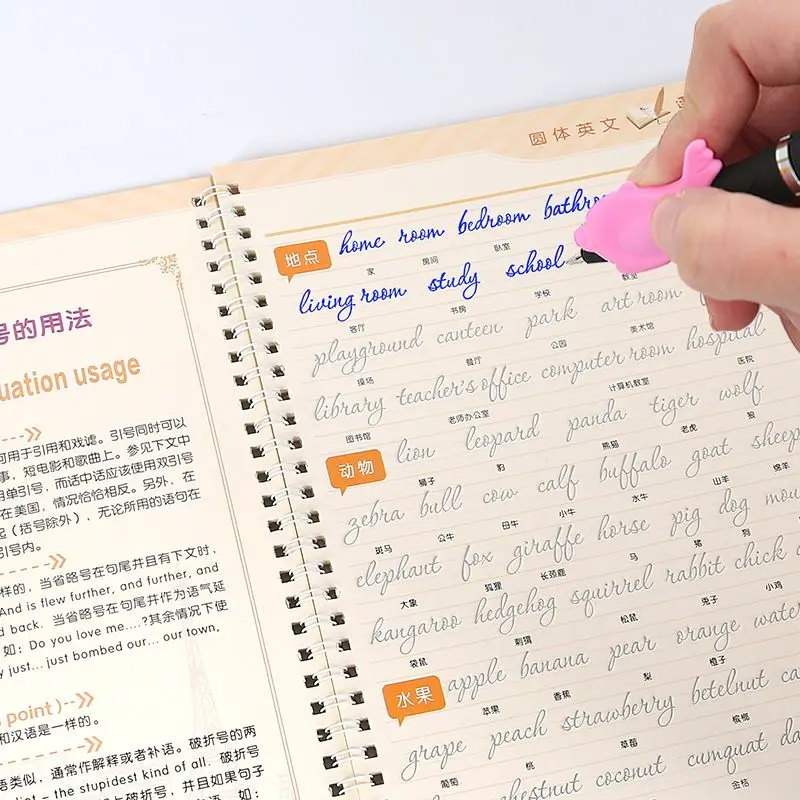 号的用法
uation usage
可用于引用和戏谑。引号同时可以
事，短电影和歌曲上。参见下文中
用单引号，而话中话应该使用双引号
在美国，情况恰恰相反。另外，在
起（括号除外），无论所用的语句在
引号内。
样的，当省略号在句尾并且有下文时，
And is flew further, and further, and
d back. 当省略号在句尾并作为语气延
如：Do you love me....?其余情况下使
y just... just bombed our... our town,
point）
和汉语是一样的。
语类似，通常作解释或者补语。破折号的两
- the stupidest kind of all. 破折号
并且如果句子
圆体英文
地点 home room bedroom
家 房间 卧室
living room study school
客厅 书房 学校 教室
playground canteen park art room
操场 餐厅 公园 美术馆
library teacher's office computer room hospital
图书馆 老师办公室 计算机教室 医院
动物 lion leopard panda tiger wolf
狮子 豹 熊猫 老虎 狼
zebra bull cow calf buffalo goat sheep
斑马 公牛 母牛 小牛 水牛 山羊 绵羊
elephant fox giraffe horse pig dog
大象 狐狸 长颈鹿 马 猪 狗
kangaroo hedgehog squirrel rabbit chick
袋鼠 刺猬 松鼠 兔子 小鸡
水果 apple banana pear orange
苹果 香蕉 梨 橙子
grape peach strawberry betelnut
葡萄 桃 草莓 槟榔
chestnut coconut cumquat
金桔